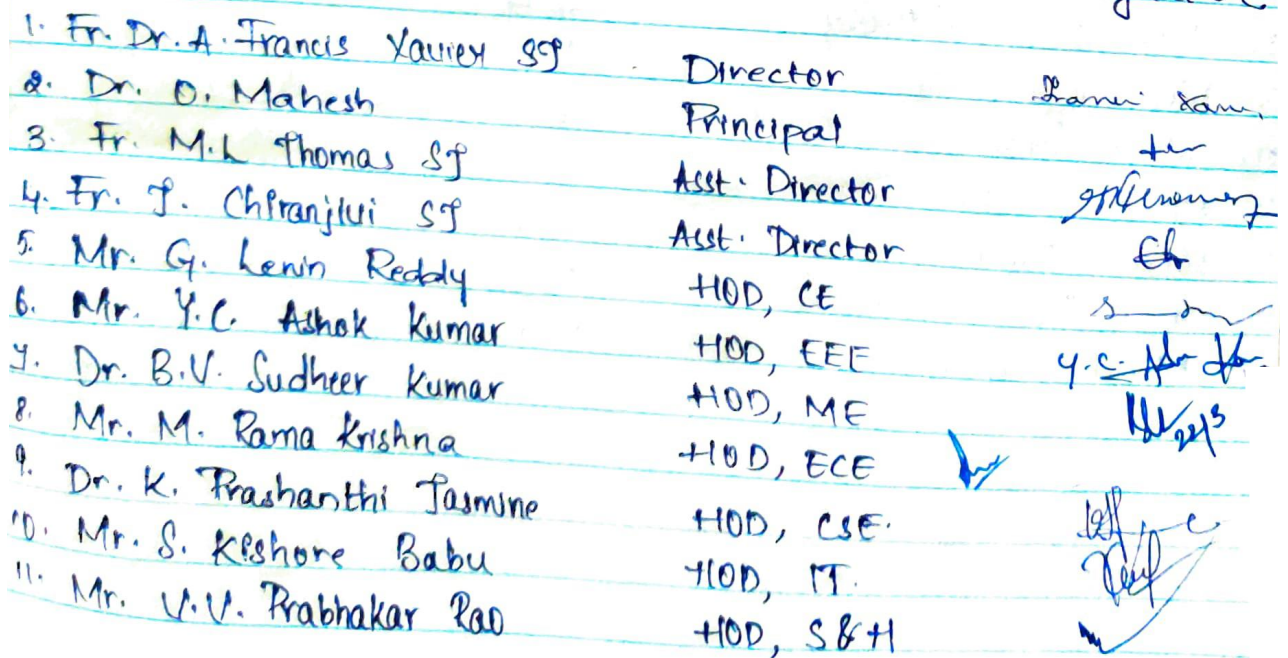 1. Fr. Dr. A. Francis Xavier SJ Director
2. Dr. O. Mahesh Principal
3. Fr. M.L Thomas SJ Asst. Director
4. Fr. J. Chiranjivi SJ Asst. Director
5. Mr. G. Lenin Reddy HOD, CE
6. Mr. Y.C. Ashok Kumar HOD, EEE Y.C.
7. Dr. B.V. Sudheer Kumar HOD, ME
8. Mr. M. Rama Krishna HOD, ECE
9. Dr. K. Prashanthi Jasmine HOD, CSE.
10. Mr. S. Kishore Babu HOD, IT.
11. Mr. V.V. Prabhakar Rao HOD, S&H